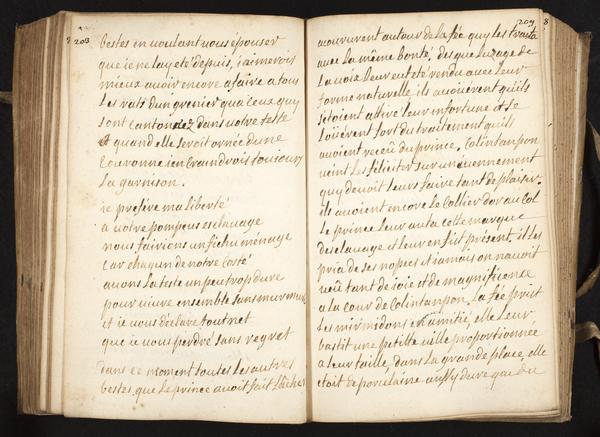 203
bestes en voulant vous épouser
que je ne lay eté depuis, jaimerois
mieux avoir encore afaire a tous
les rats dun grenier qua ceux quy
sont cantonnez dans votre teste
et quand elle seroit ornée dune
couronne jen craindrois toujours
la garnison.
je prefere ma liberté
a votre pompeux esclavage
nous fairions un fichu ménage
car chaqun de notre costé
avons la teste un peu trop dure
pour vivre ensemble sans murmure
et je vous déclare tout net
que je vous perdré sans regret
dans ce moment toutes les autres
bestes que le prince avoit fait lâcher
209 8
acoururent autour de la fée quy les traita
avec la même bonté. des que luzage de
la voix leur eut eté rendu avec leur
forme naturelle ils avouérent quils
sétoient attiré leur infortune et se
loüérent fort du traitement quils
avoient receû du prince. Colintanpon
vint les féliciter sur un évennement
quy devoit leurs faire tant de plaisir.
ils avoient encore le collier dor au col
le prince leur auta cette marque
desclavage et leur en fist présent. il les
pria de ses nopces et jamais on navoit
veû tant de joie et de magnificence
a la cour de Colintanpon. la fée prist
les mirmidons en amitié, elle leur
bastit une petite ville proportionnée
a leur taille, dans la grande place, elle
etoit de porcelaine aussy dure que du